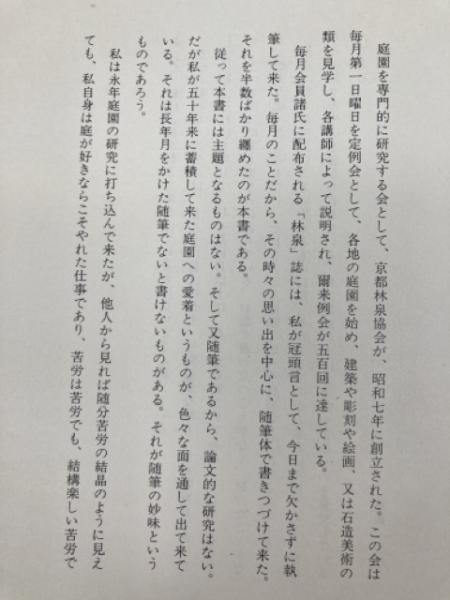 庭園を専門的に研究する会として、京都林泉協会が、昭和七年に創立された。この会は
毎月第一日曜日を定例会として、各地の庭園を始め、建築や彫刻や絵画、又は石造美術の
類を見学し、各講師によって説明され、爾来例会が五百回に達している。
毎月会員諸氏に配布される「林泉」誌には、私が冠頭言として、今日まで欠かさずに執
筆して来た。毎月のことだから、その時々の思い出を中心に、随筆体で書きつづけて来た。
それを半数ばかり纏めたのが本書である。
従って本書には主題となるものはない。そして又随筆であるから、論文的な研究はない。
だが私が五十年来に蓄積して来た庭園への愛着というものが、色々な面を通して出て来て
いる。それは長年月をかけた随筆でないと書けないものがある。それが随筆の妙味という
ものであろう。
私は永年庭園の研究に打ち込んで来たが、他人から見れば随分苦労の結晶のように見え
ても、私自身は庭が好きならこそやれた仕事であり、苦労は苦労でも、結構楽しい苦労で